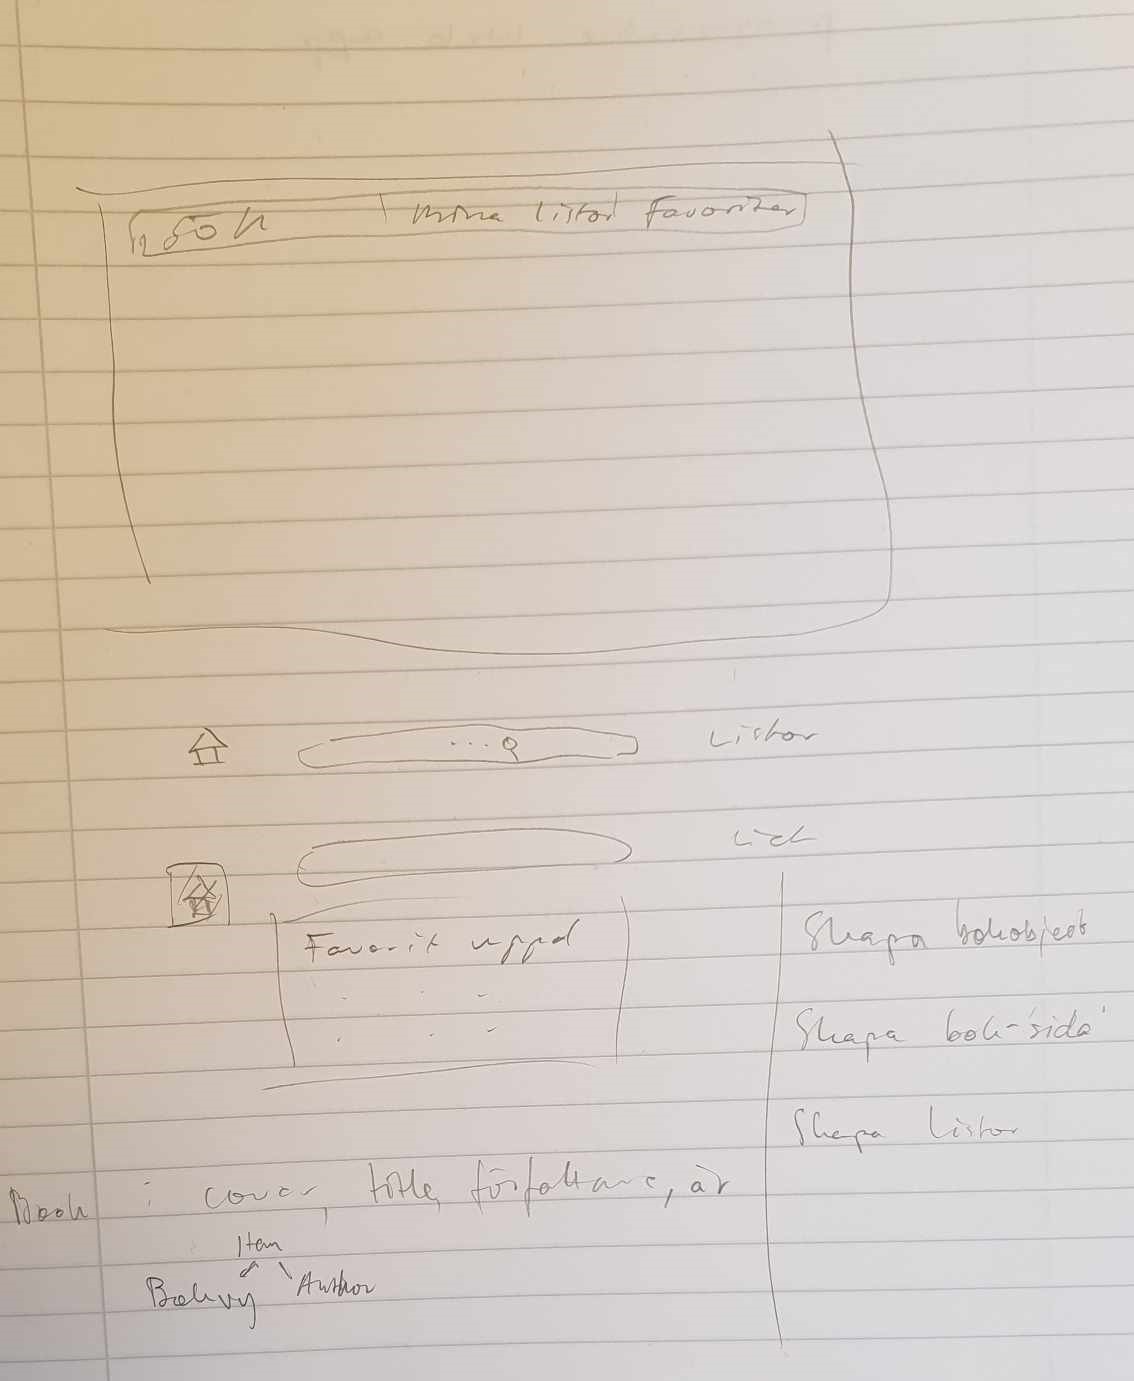 sök mina listor Favoriter
... Listor
List
Favorit uppd
Skapa bokobject
Skapa bok-'sida'
Skapa listor
Book : cover, title, författare, år
Item
Bokvy Author